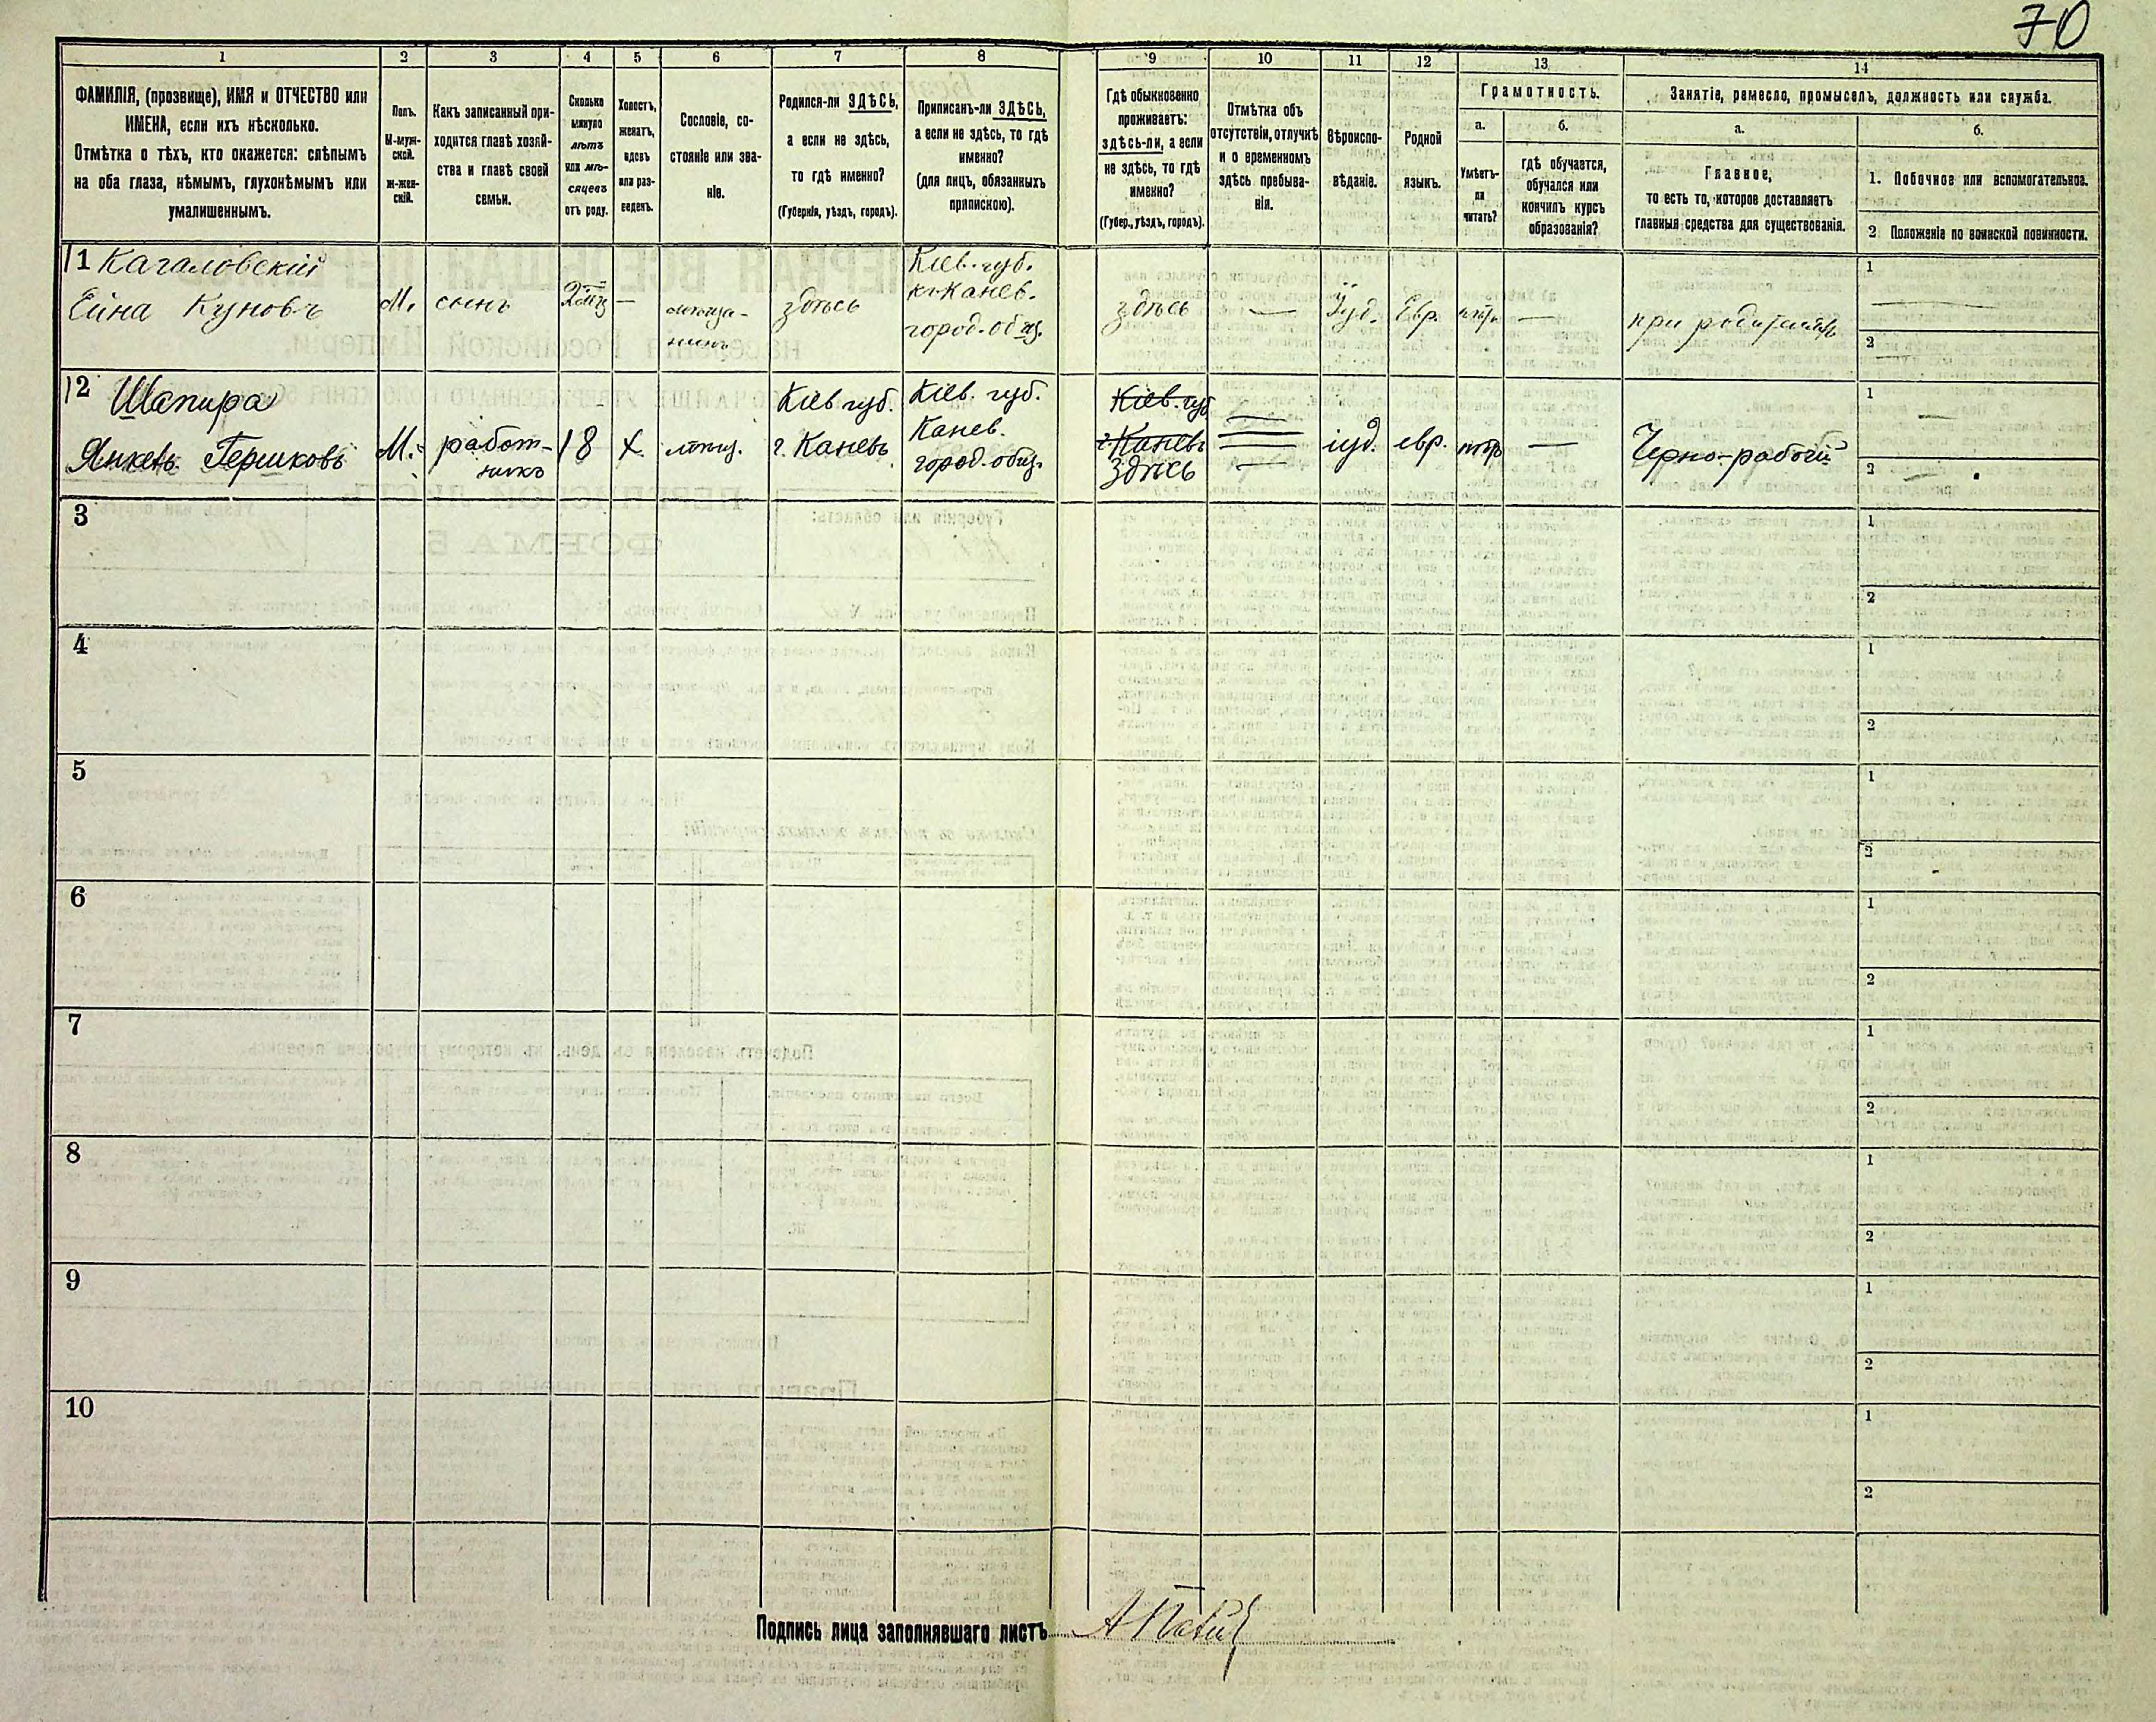 70
1
2
3
4
5
6
7
8
9
10
11
12
13
14
ФАМИЛІЯ, (прозвище), ИМЯ и ОТЧЕСТВО или
ИМЕНА, если ихъ нѣсколько.
Отмѣтка о тѣхъ, кто окажется: слѣпымъ
на оба глаза, нѣмымъ, глухонѣмымъ или
умалишеннымъ.
Полъ.
М-муж-
ской.
Ж-жен-
скій.
Какъ записанный при-
ходится главѣ хозяй-
ства и главѣ своей
семьи.
Сколько
минуло
лѣтъ
или мѣ-
сяцевъ
отъ роду.
Холостъ,
женатъ,
вдовъ
или раз-
веденъ.
Сословіе, со-
стояніе или зва-
ніе.
Родился-ли ЗДѢСЬ,
а если не здѣсь,
то гдѣ именно?
(Губернія, уѣздъ, городъ).
Приписанъ-ли ЗДѢСЬ,
а если не здѣсь, то гдѣ
именно?
(для лицъ, обязанныхъ
припискою).
Гдѣ обыкновенно
проживаетъ:
здѣсь-ли, а если
не здѣсь, то гдѣ
именно?
(Губер., уѣздъ, городъ).
Отмѣтка объ
отсутствіи, отлучкѣ
и о временномъ
здѣсь пребыва-
ніи.
Вѣроиспо-
вѣданіе.
Родной
языкъ.
Грамотность.
а.
Умѣетъ-
ли
читать?
б.
гдѣ обучается,
обучался или
кончилъ курсъ
образованія?
Занятіе, ремесло, промыселъ, должность или служба.
а.
Главное,
то есть то, которое доставляетъ
главныя средства для существованія.
б.
1. Побочное или вспомогательное.
2 Положеніе по воинской повинности.
11 Кагаловскій
Ейна Куновъ
М.
сынъ
—
мѣща-
нинъ
здѣсь
Кіев. губ.
г. Канев.
город. общ.
здѣсь
—
Іуд.
Евр.
—
при родителяхъ
1
2
12 Шапира
Янкель Гершковъ
М.
работ-
никъ
18
Х.
мѣщ.
Кіев губ.
г. Каневъ
Кіев. губ.
Канев.
город. общ.
Кіев. губ
г. Каневъ
здѣсь
—
іуд.
евр.
—
Черно-рабочій
1
2
3
1
2
4
1
2
5
1
2
6
1
2
7
1
2
8
1
2
9
1
2
10
1
2
Подпись лица заполнявшаго листъ